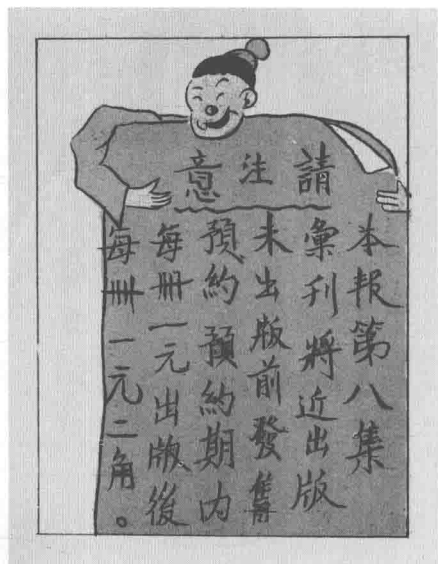 請注意
本報第八集
彙刊將近出版
未出版前發售
預約預約期内
每冊一元出版後
每冊一元二角。